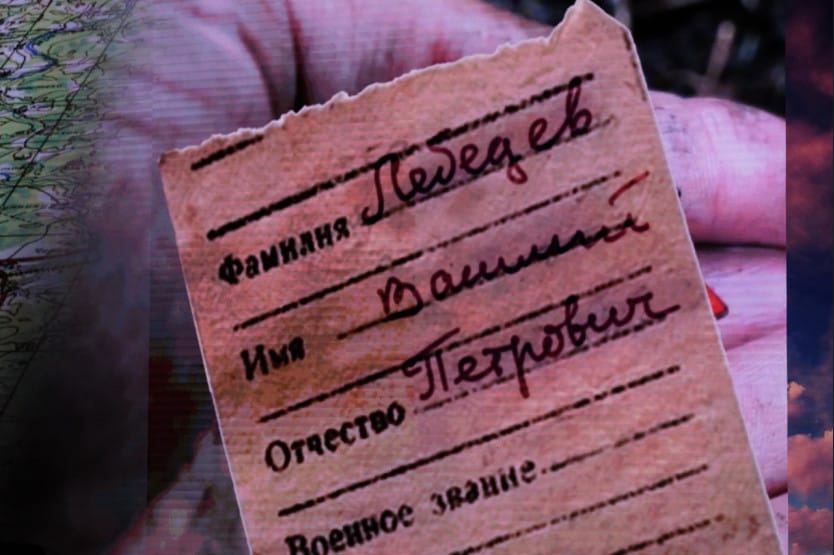 Фамилия Лебедев
Имя Василий
Отчество Петрович
Военное звание